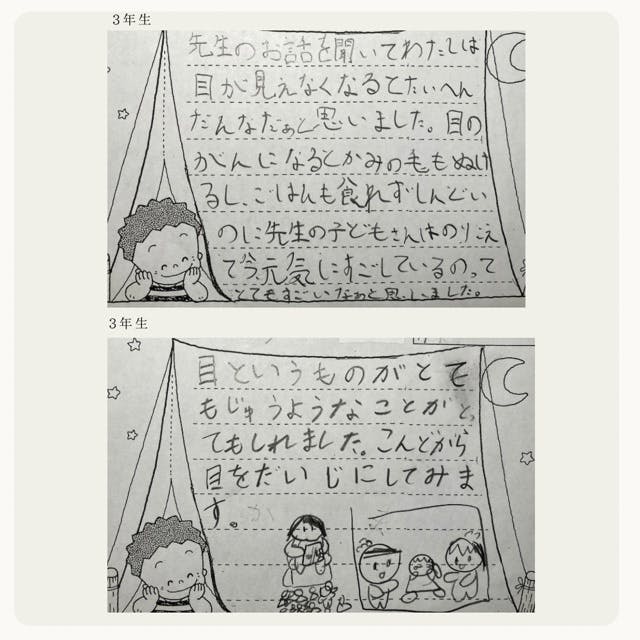 3年生
先生のお話を聞いてわたしは
目が見えなくなるとたいへん
だんなだぁと思いました。目の
がんになるとかみの毛もぬけ
るし、ごはんも食れずしんどい
のに先生の子どもさんはのりこえ
て今元気にすごしているのって
とてもすごいなぁと思いました。
3年生
目というものがとて
もじゅうようなことがと
てもしれました。こんどから
目をだいじにしてみま
す。